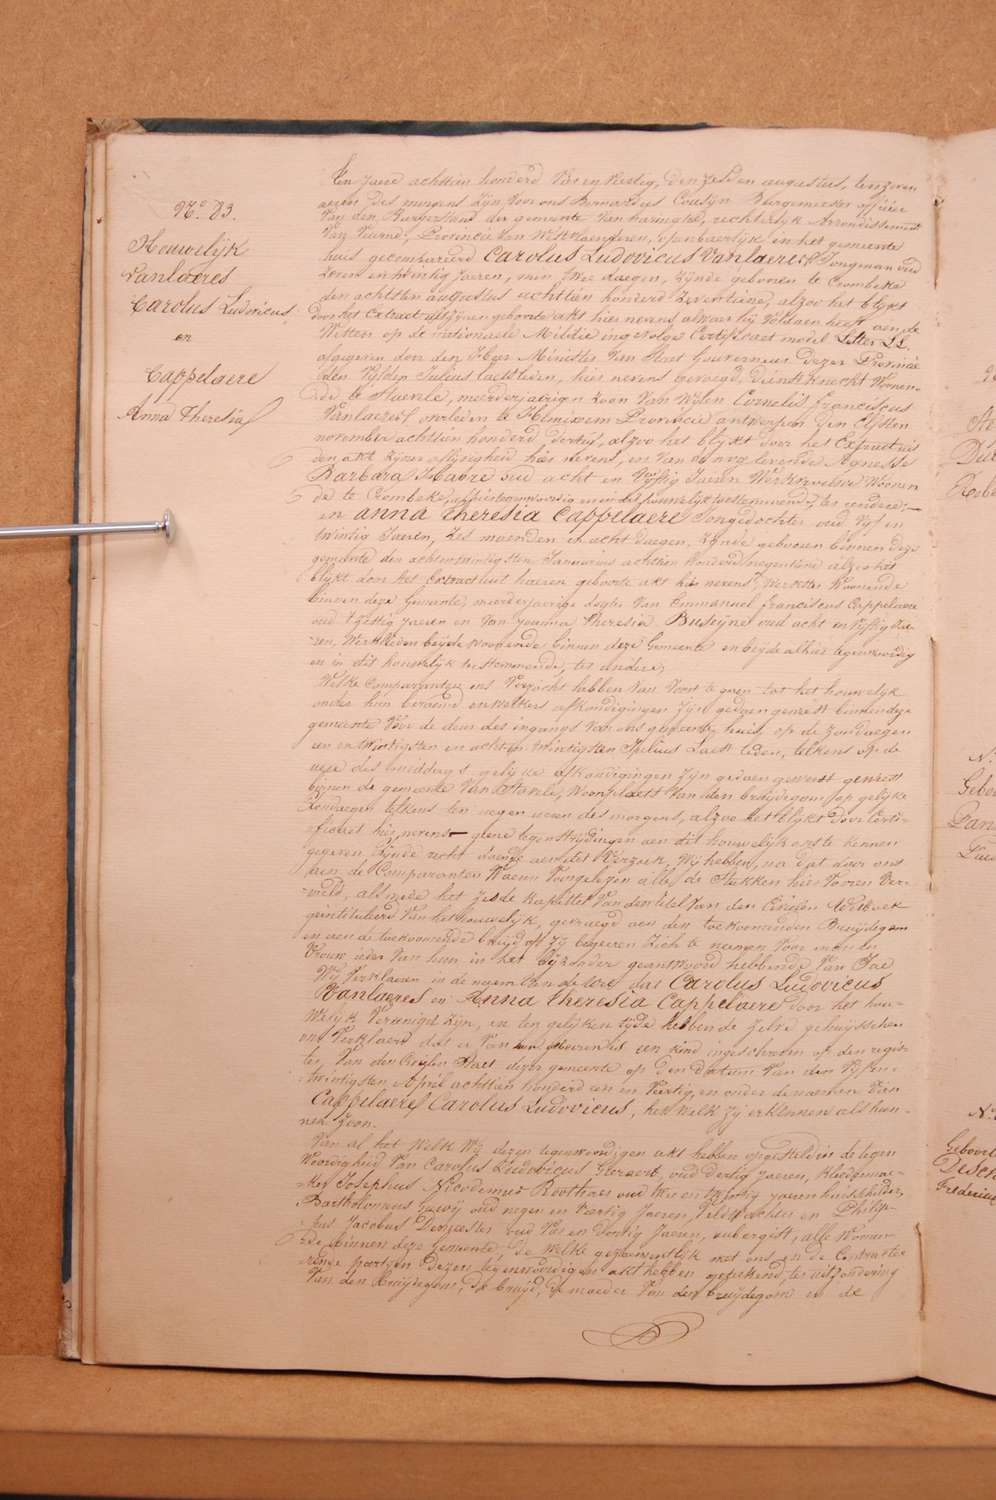 N.º 83.
Houwelijk
Vanlaeres
Carolus Ludovicus,
en
Cappelaere
Anna Theresia
En Jaere achttien honderd en Veertig, den augustus, ten zeven
uren des morgens zijn voor ons Bernardus Cousyn Burgemeester officier
Van den Burgerstand der gemeente Van haringhe, rechterlijk Arrondissement
Van Veurne, Provincie Van Westvlaenderen, openbaerlijk in het gemeente
huis gecompareerd Carolus Ludovicus Vanlaeres Jongman oud
Zeven en twintig Jaeren, min twee daegen, zijnde geboren te Crombeke
den achtsten augustus achttien honderd Zeventiene, alzoo het blijkt
door het Extract uit zijnen geboorte akt hier nevens, alwaer hij voldaen heeft aen de
Wetten op de nationaele Militie ingevolge Certificaet model Letter LL
afgegeven door den Heer Minister Van Staet Gouverneur dezer Provincie
den Vijfden Julius laestleden, hier nevens gevoegd, dienstknecht Woonen-
de te Stavele, meerderjaerigen zoon Van Wijlen Cornelis Franciscus
Vanlaeres overleden te Hemixem Provincie antwerpen den elfsten
november achttien honderd dertig, alzoo het blijkt door het Extract uit
den akt zijner aflijvigheid hier nevens, en Van de nog levende Agnesse
Barbara oud acht en Vijftig Jaeren Werkvrouwe Woonen
de te Crombeke, alhier tegenwoordig en in dit houwelijk toestemmende, ter eendere;
en anna theresia Cappelaere Jongedochter oud Vijf en
twintig Jaeren, zes maenden en acht daegen, zijnde geboren binnen deze
gemeente den achtentwintigsten Januarius achttien honderd negentiene alzoo het
blijkt door het Extract uit haeren geboorte akt hier nevens, Woonende
binnen deze Gemeente, meerderjaerige dogter Van Emmanuel Franciscus Cappelaere
oud tzestig Jaeren en Van Joanna Theresia Buseyne oud acht en Vijftig Jae-
ren, Werklieden beijde Woonende binnen deze Gemeente en beijde alhier tegenwoordig
en in dit houwelijk toestemmende, ter andere;
Welke Comparanten ons Verzocht hebben Van Voort te gaen tot het houwelijk
onder hun beraemd en welkers afkondigingen zijn gedaen geweest binnen deze
gemeente Voor de deur des ingangs Van ons gemeente huis, op de zondaegen
een en twintigsten en achtentwintigsten Julius Laest leden, telkens op de
uere des middags gelijke afkondigingen zijn gedaen geweest geweest
binnen de gemeente Van Stavele, Woonplaets Van den bruijdegom, op gelijke
Zondaegen telkens ten negen ueren des morgens, alzoo het blijkt door Certi-
ficaet hier nevens geene tegenstrijdingen aen dit houwelijk ons te kennen
gegeven zijnde recht doende aen het Verzoek, Wij hebben, na dat door ons
aen de Comparanten Waeren Voorgelezen alle de Stukken hier Voren Ver-
meld, als mede het zesde kapittel Van den titel Van den Civielen Wetboek
geintituleerd Van het houwelijk, gevraegd aen den toekomenden Bruijdegom
en aen de toekomende bruijd oft zij begeren zich te nemen Voor man en
Vrouw, ieder Van hun in het bijzonder geantwoord hebbende Van Jae
Wij Verklaeren in de naem Van de Wet dat Carolus Ludovicus
Vanlaeres en Anna theresia Cappelaere door het hou-
Welijk Vereenigd zijn, en ten gelijken tijde hebben de zelve gehuijsschen
ons Verklaerd dat er Van hun geboren is een kind ingeschreven op den regis-
ter Van den Civielen Staet dezer gemeente op den datum Van den Vijfen-
twintigsten April achttien honderd een en Veertig, en onder de naemen Van
Cappelaere Carolus Ludovicus, het welk zij erkennen als hun-
nen Zoon.
Van al het Welk Wij dezen tegenwoordigen akt hebben opgesteld in de tegen
Woordigheid Van Carolus Ludovicus Gervaert, oud dertig Jaeren, kleedmae-
ker Josephus Nicodemus Boothaes oud en Jaeren huisschilder,
Bartholomeus oud negen en Veertig Jaeren, Veldwachter en Philip-
pus Jacobus oud en dertig Jaeren, herbergist, alle Woonen-
de binnen deze gemeente, de Welke gezaementlijk met ons en de Contractee-
rende partijen dezen tegenwoordigen akt hebben geteekend, ter uitzondering
Van den bruijdegom, de bruijd, de moeder Van den bruijdegom en de